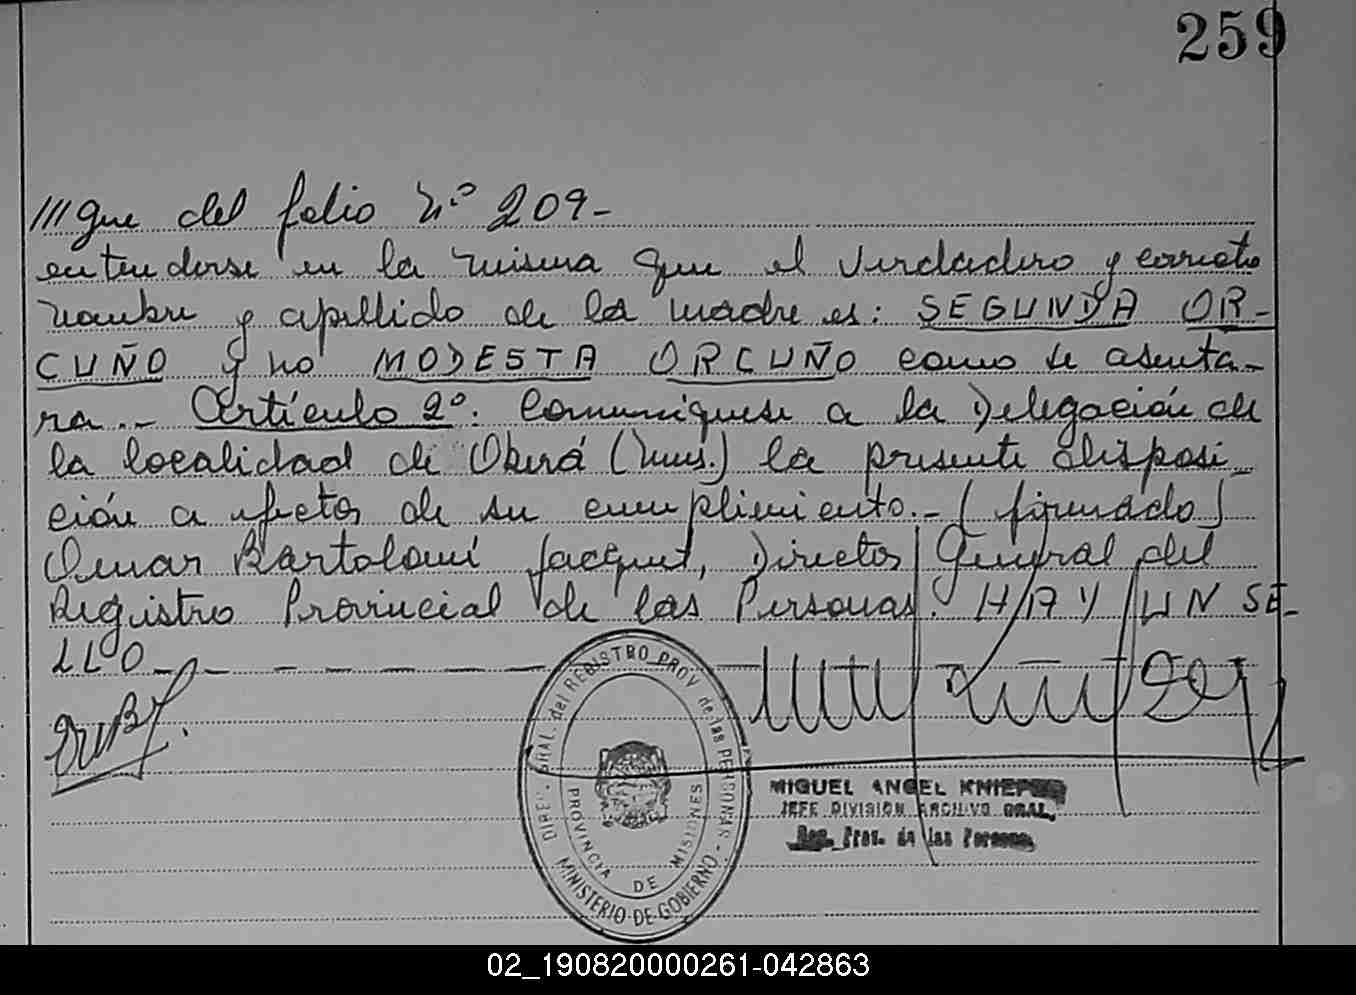 259
///que del folio Nº 209-
entenderse en la misma que el verdadero y correcto
nombre y apellido de la madre es: SEGUNDA OR-
CUÑO y no MODESTA ORCUÑO como se asenta-
ra.- Artículo 2º. Comuníquese a la Delegación de
la localidad de Oberá (Mnes.) la presente disposi-
ción a efectos de su cumplimiento.- (firmado)
Omar Bartolomé Jacquet, Director General del
Registro Provincial de las Personas. HAY UN SE-
LLO
DIREC. GRAL. del REGISTRO PROV. de las PERSONAS - MINISTERIO DE GOBIERNO
PROVINCIA DE MISIONES
MIGUEL ANGEL
JEFE DIVISION ARCHIVO GRAL.
Reg. Prov. de las Personas
02_190820000261-042863